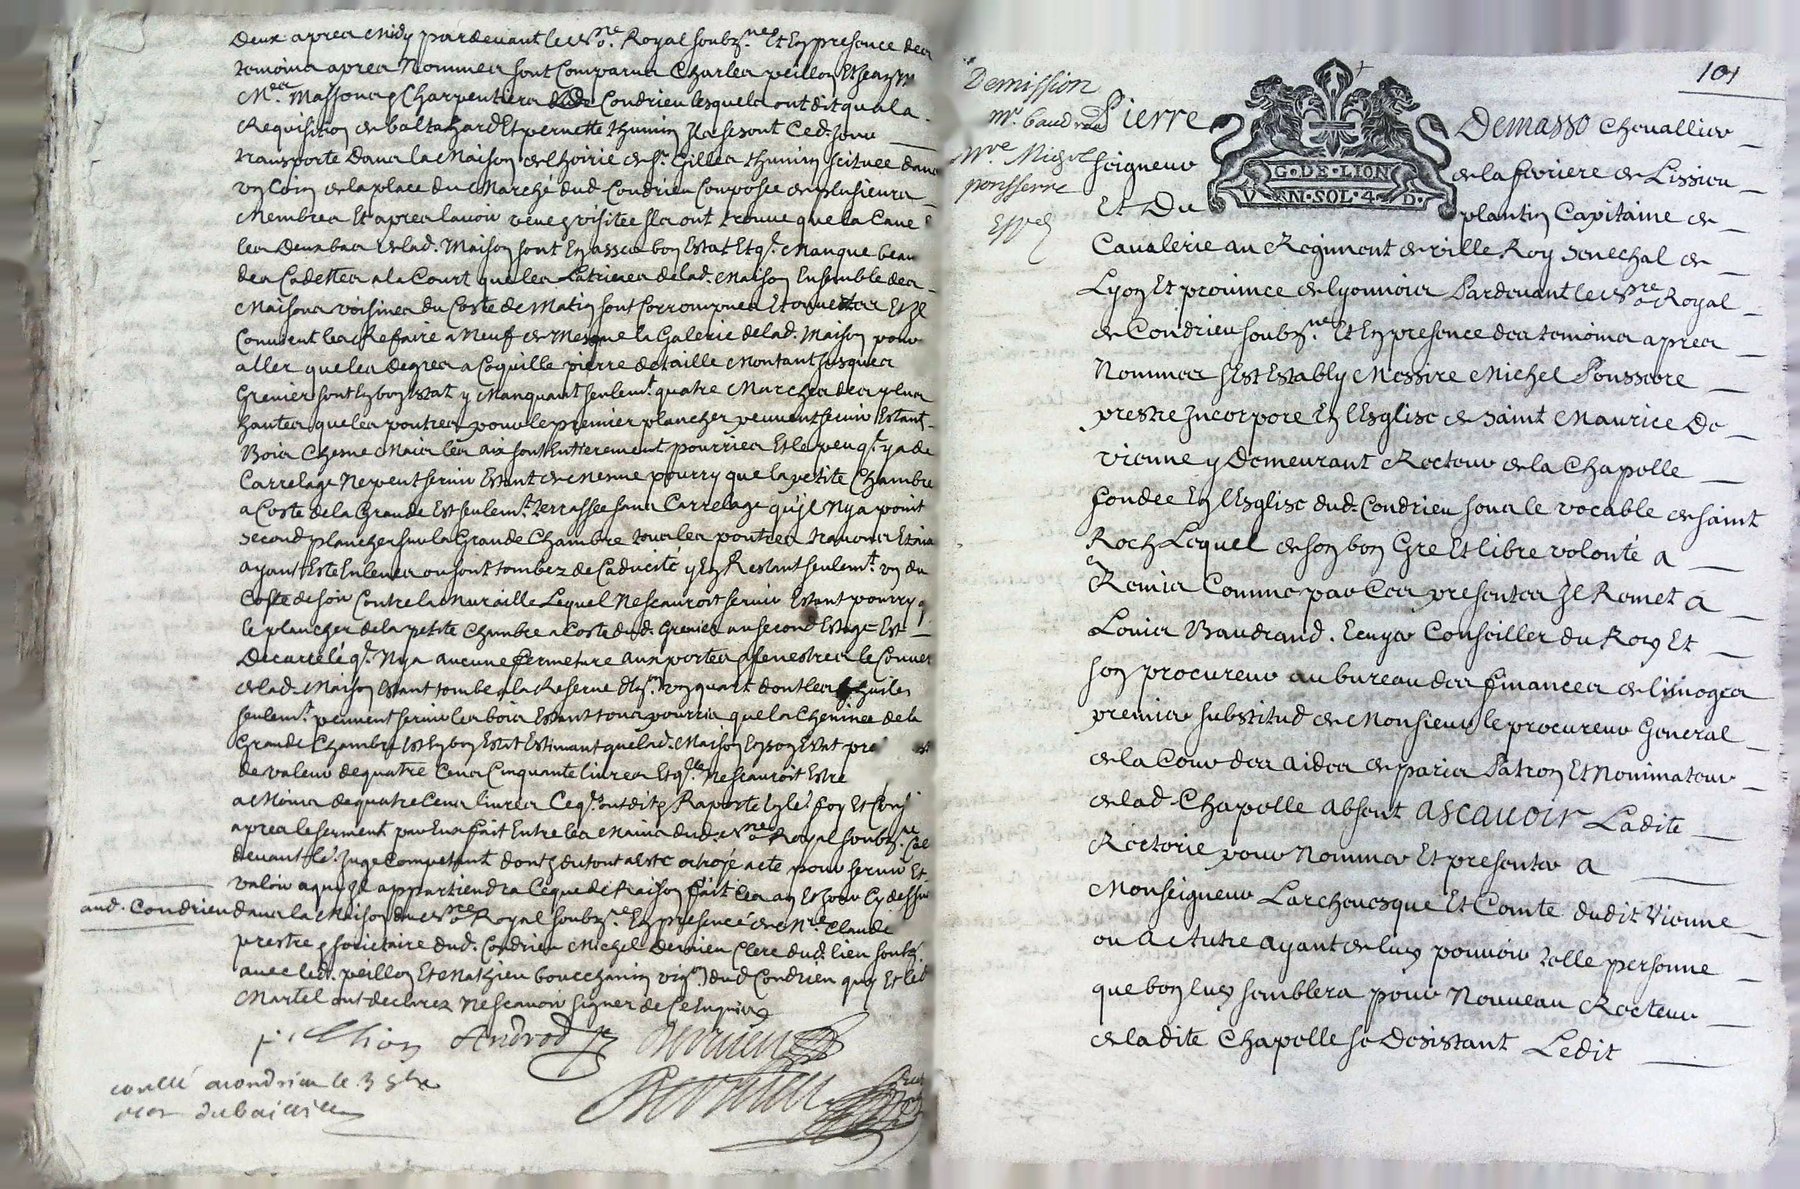 deux apres midy pardevant le No.re Royal soubz.ne Et En presence des
temoins apres Nommes sont Comparus Charles peillon Et Jean
M.es Massons & Charpentiers de Condrieu lesquels ont dit qua la
Requisition de baltazard Et pernette thunin Ils se sont Ced. Jour
transporte dans la Maison de lhoirie de S.r Gilles thunin scituee dans
un Coin de la place du Marché dud. Condrieu Composee de plusieurs
Membres Et apres lavoir veue & visitee Ils ont trouve que la Cave &
les deux bas de lad. Maison sont En asses bon Estat Et q. Manque beau
des Cadettes a la Court que les Latrines de lad. Maison Ensemble des
Maisons voisines du Coste de Matin sont Corrompues Et ouvertes Et Il
Convient les Refaire a Neuf de Mesme la Galerie de lad. Maison pour
aller que les degres a Coquille pierre de taille Montant Jusques
Grenier sont En bon Estat y Manquant seulem.t quatre Marches des plus
hautes que les poutres pour le premier plancher peuvent servir Estant
Bois Chesne Mais les aix sont Entierement pourries Et le peu q.l y a de
Carrelage Ne peut servir Estant de Mesme pourry que la petite Chambre
a Coste de la Grande Est seulem.t terrassee sans Carrelage qu'il Ny a point
second plancher sur la Grande Chambre tous les poutres travons Et aix
ayant Este Enleves ou sont tombez de Caducité y En Restant seulem.t un du
Coste de soir Contre la Muraille Lequel Ne scauroit servir Estant pourry q.
le plancher de la petite Chambre a Coste dud. Grenier au second Estage Est
Decarelé q.l Ny a aucune fermeture aux portes & fenestres le Couvert
de lad. Maison Estant tombe a la Reserve d'un quart dont les thuiles
seulem.t peuvent servir les bois Estant tous pourris que la Cheminee de la
Grande Chambre Est En bon Estat Estimant que lad. Maison En son Estat
de valeur de quatre Cens Cinquante livres Et q.lle Ne scauroit Estre
a Moins de quatre Cens livres Ce q.ls ont dit & Raporté En le.r foy Et
apres le serment par Eux fait Entre les Mains dud. No.re Royal soubz.ne
devant le Juge Competant dont & du tout a Este octroyé acte pour servir Et
valoir a qui Il appartiendra Ce que de Raison fait les an Et Jour Cy dessus
aud. Condrieu dans la Maison du No.re Royal soubz.ne En presence de M.re Claude
prestre & societaire dud. Condrieu Michel Dervieu Clerc dud. lieu soubz.
avec led. peillon Et Mathieu bouchanin vig.on dud Condrieu quy Et led
Martel ont declarez Ne scavoir signer de Ce Enquis
Androd Dervieu
Dervieu
Demission
101
Pierre Demasso Chevallier
Seigneur de la ferriere de Lissieu
Et Du plantin Capitaine de
G·DE·LION
V N·SOL·4 D·
Cavalerie au Regiment de ville Roy Senechal de
Lyon Et province de lyonnois Pardevant le No.re Royal
de Condrieu soubz.ne Et En presence des temoins apres
Nommes s'Est Estably Messire Michel Ponsserre
prestre Incorpore En lEglise de Saint Maurice De
vienne y Demeurant Recteur de la Chapelle
fondee En lEglise dud. Condrieu soubs le vocable de Saint
Roch Lequel de son bon Gre Et libre volonté a
Remis Comme par Ces presentes Il Remet a
Louis Baudrand. Ecuyer Conseiller du Roy Et
son procureur au bureau des finances de limoges
premier substitud de Monsieur le procureur General
de la Cour des aides de paris Patron Et Nominateur
de lad. Chapelle absent ascavoir Ladite
Rectorie pour Nommer Et presenter a
Monseigneur Larchevesque Et Comte dudit Vienne
ou autre ayant de luy pouvoir telle personne
que bon luy semblera pour Nouveau Recteur
de ladite Chapelle se Desistant Ledit